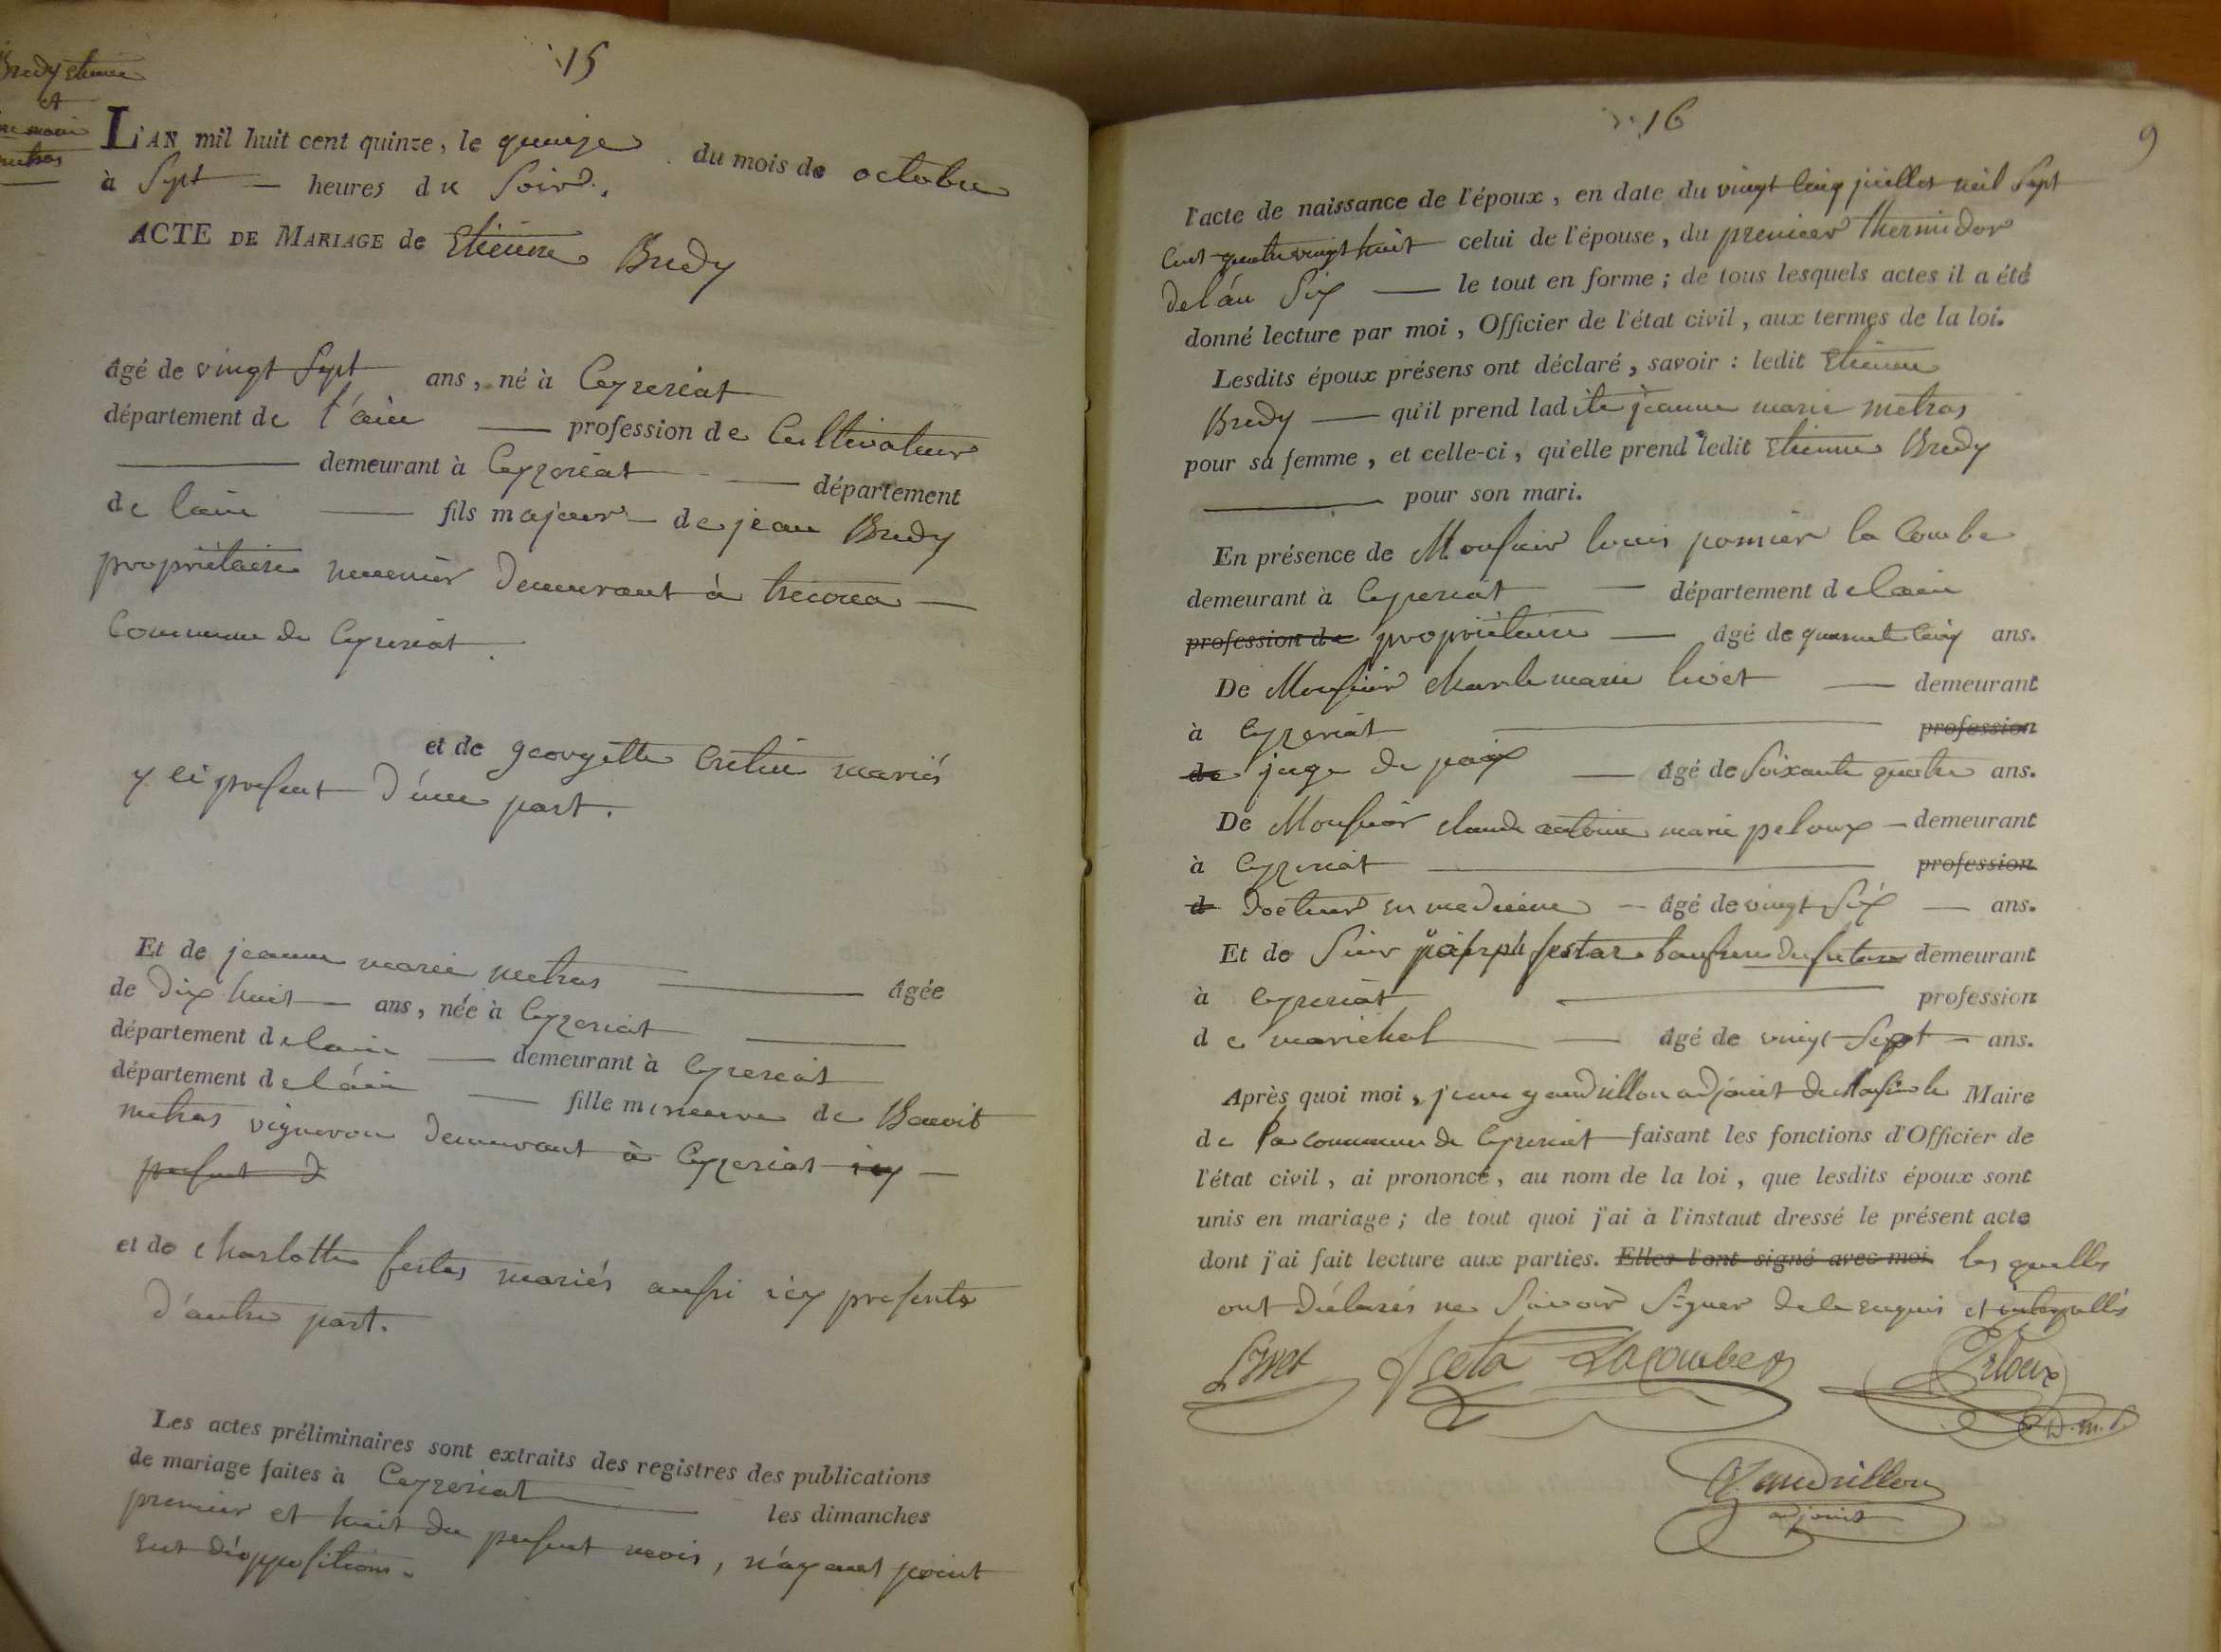 15
Bredy Etienne
et
metras
L'AN mil huit cent quinze, le quinze du mois de octobre
à Sept — heures du Soir.
ACTE DE MARIAGE de Etienne Bredy
âgé de vingt Sept ans, né à Ceyzeriat
département de l'ain — profession de Cultivateur
— demeurant à Ceyzeriat — département
de lain — fils majeur — de jean Bredy
propriétaire meunier demeurant à —
Commune de Ceyzeriat.
et de georgette Cretin mariés
y ci present d'une part.
Et de jeanne marie metras — âgée
de dix huit — ans, née à Ceyzeriat —
département de lain — demeurant à Ceyzeriat
département de l'áin — fille mineure de Benoit
metras vigneron demeurant à Ceyzeriat icy —
present d
et de charlotte festas mariés aussi icy presents
d'autre part.
Les actes préliminaires sont extraits des registres des publications
de mariage faites à Ceyzeriat — les dimanches
premier et huit du present mois, n'ayant point
eut d'oppositions.
16
9
l'acte de naissance de l'époux, en date du vingt Cinq juillet mil Sept
Cent quatre vingt huit celui de l'épouse, du premier thermidor
de l'án Six — le tout en forme; de tous lesquels actes il a été
donné lecture par moi, Officier de l'état civil, aux termes de la loi.
Lesdits époux présens ont déclaré, savoir: ledit Etienne
Bredy — qu'il prend ladite jeanne marie metras
pour sa femme, et celle-ci, qu'elle prend ledit Etienne Bredy
— pour son mari.
En présence de Monsieur louis la Combe
demeurant à Ceyzeriat — département de lain
profession de propriétaire — âgé de quarante Cinq ans.
De Monsieur charle marie livet — demeurant
à Ceyzeriat — profession
de juge de paix — âgé de Soixante quatre ans.
De Monsieur claude antoine marie peloux — demeurant
à Ceyzeriat — profession
d docteur en medecine — âgé de vingt Six — ans.
Et de Sieur joseph festas beaufrere du futur demeurant
à Ceyzeriat — profession
de marichal — âgé de vingt Sept — ans.
Après quoi moi, jean gandrillon adjoint de Monsieur le Maire
de la commune de Ceyzeriat faisant les fonctions d'Officier de
l'état civil, ai prononcé, au nom de la loi, que lesdits époux sont
unis en mariage; de tout quoi j'ai à l'instaut dressé le présent acte
dont j'ai fait lecture aux parties. Elles l'ont signé avec moi les quelles
ont déclarés ne Savoir Signer de le enquis et interpellés
Livet
Lacombe
Peloux
D. m. P.
Gandrillon
adjoint